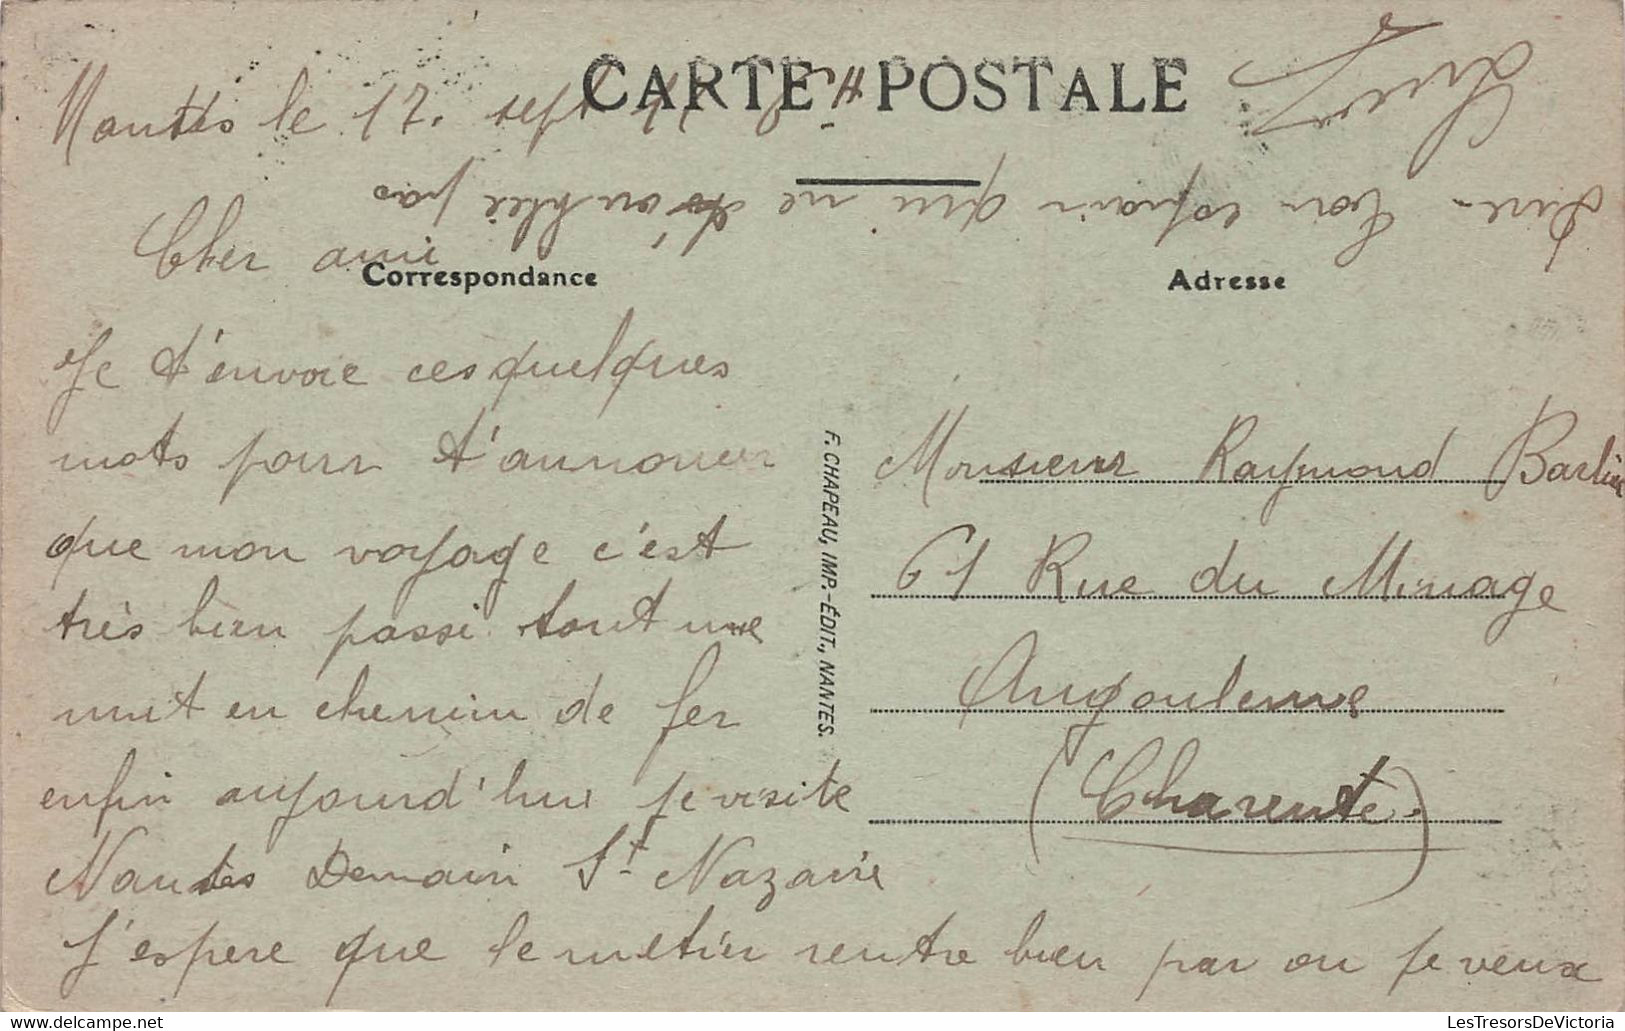 CARTE POSTALE
Nantes le 17. sept
Cher ami
Correspondance
Je t'envoie ces quelques
mots pour t'annoncer
que mon voyage c'est
très bien passé tout une
nuit en chemin de fer
enfin aujourd'hui je visite
Nantes Demain St Nazaire
J'espere que le metier rentre bien par ou je veux
dire - ton copain qui ne t'oublie pas
F. CHAPEAU, IMP.-ÉDIT., NANTES.
Adresse
Monsieur Raymond
61 Rue du Minage
Angouleme
(Charente)
LesTresorsDeVictoria